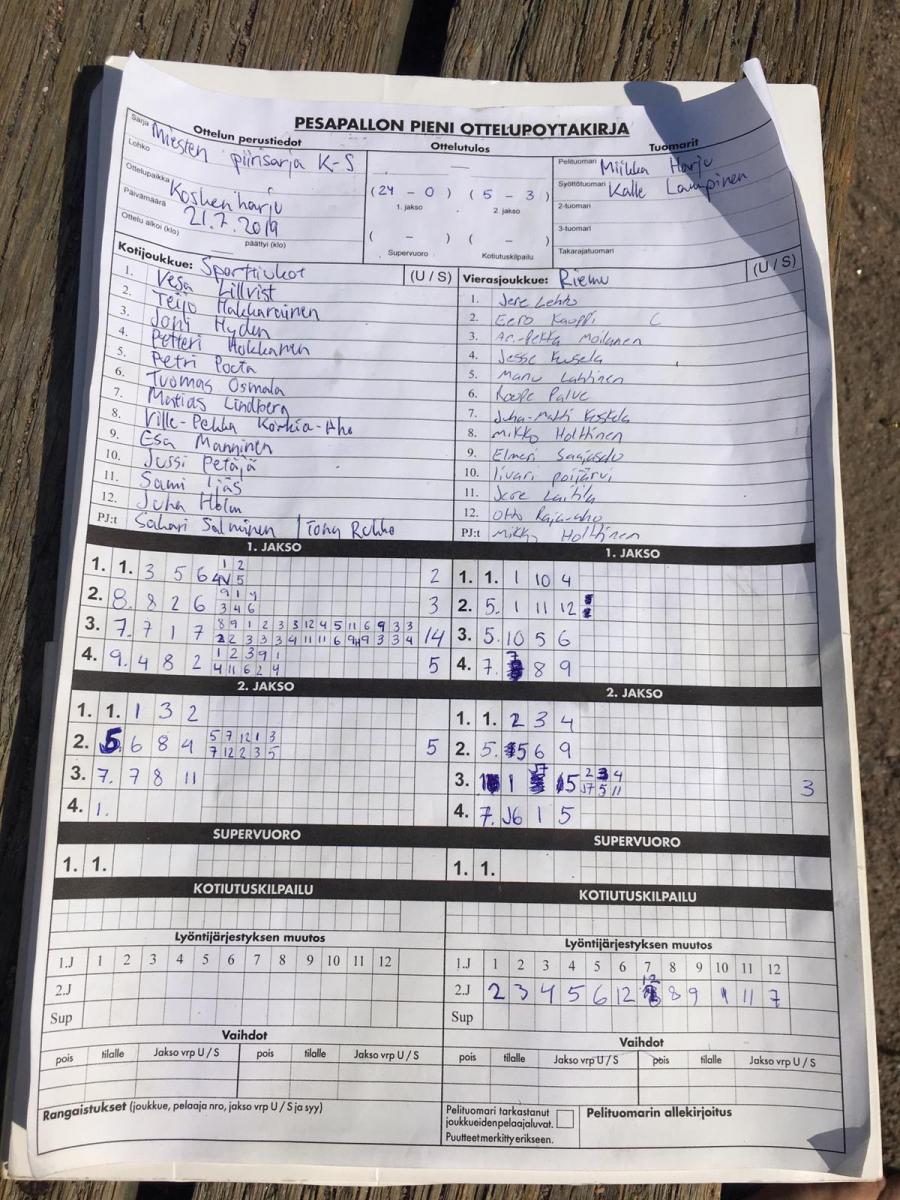 PESAPALLON PIENI OTTELUPÖYTÄKIRJA
Ottelun perustiedot Ottelutulos Tuomarit
Sarja Miesten piirisarja K-S
Lohko
Ottelupaikka Koskenharju
Päivämäärä 21.7.2019
Ottelu alkoi (klo) päättyi (klo)
(24 - 0) (5 - 3)
1. jakso 2. jakso
( - ) ( - )
Supervuoro Kotiutuskilpailu
Pelituomari Miikka Harju
Syöttötuomari Kalle Lampinen
2-tuomari
3-tuomari
Takarajatuomari
Kotijoukkue: Sporttiukot (U / S)
1. Vesa Lillvist
2. Teijo Makkarainen
3. Joni Hyden
4. Petteri Hokkanen
5. Petri Pocta
6. Tuomas Osmala
7. Matias Lindberg
8. Ville-Pekka Korkia-Aho
9. Esa Manninen
10. Jussi Petäjä
11. Sami Ijäs
12. Juha Holm
PJ:t Sakari Salminen / Tony
Vierasjoukkue: Riemu (U / S)
1. Jere Lehto
2. Eero Kauppi C
3. Ari-Pekka Moilanen
4. Jesse Kusela
5. Manu Lahtinen
6. Roope Palve
7. Juha-Matti Koskela
8. Mikko Holttinen
9. Elmeri
10. Iivari Poijärvi
11. Jere Laitila
12. Otto Raja-aho
PJ:t Mikko Holttinen
1. JAKSO 1. JAKSO
1. 1. 3 5 6 2
2. 8. 8 2 6 3
3. 7. 7 1 7 14
4. 9. 4 8 2 5
1. 1. 1 10 4
2. 5. 1 11 12
3. 5. 10 5 6
4. 7. 7 8 9
2. JAKSO 2. JAKSO
1. 1. 1 3 2
2. 5. 6 8 4 5 7 12 1 3 5
7 12 2 3 5
3. 7. 7 8 11
4. 1.
1. 1. 2 3 4
2. 5. 5 6 9
3. 1 5 3
4. 7. 1 5
SUPERVUORO SUPERVUORO
1. 1. 1. 1.
KOTIUTUSKILPAILU KOTIUTUSKILPAILU
Lyöntijärjestyksen muutos Lyöntijärjestyksen muutos
1.J 1 2 3 4 5 6 7 8 9 10 11 12
2.J
Sup
1.J 1 2 3 4 5 6 7 8 9 10 11 12
2.J 2 3 4 5 6 12 8 9 1 11 7
Sup
Vaihdot Vaihdot
pois tilalle Jakso vrp U / S pois tilalle Jakso vrp U / S
pois tilalle Jakso vrp U / S pois tilalle Jakso vrp U / S
Rangaistukset (joukkue, pelaaja nro, jakso vrp U / S ja syy)
Pelituomari tarkastanut
joukkueiden pelaajaluvat.
Puutteet merkitty erikseen.
Pelituomarin allekirjoitus